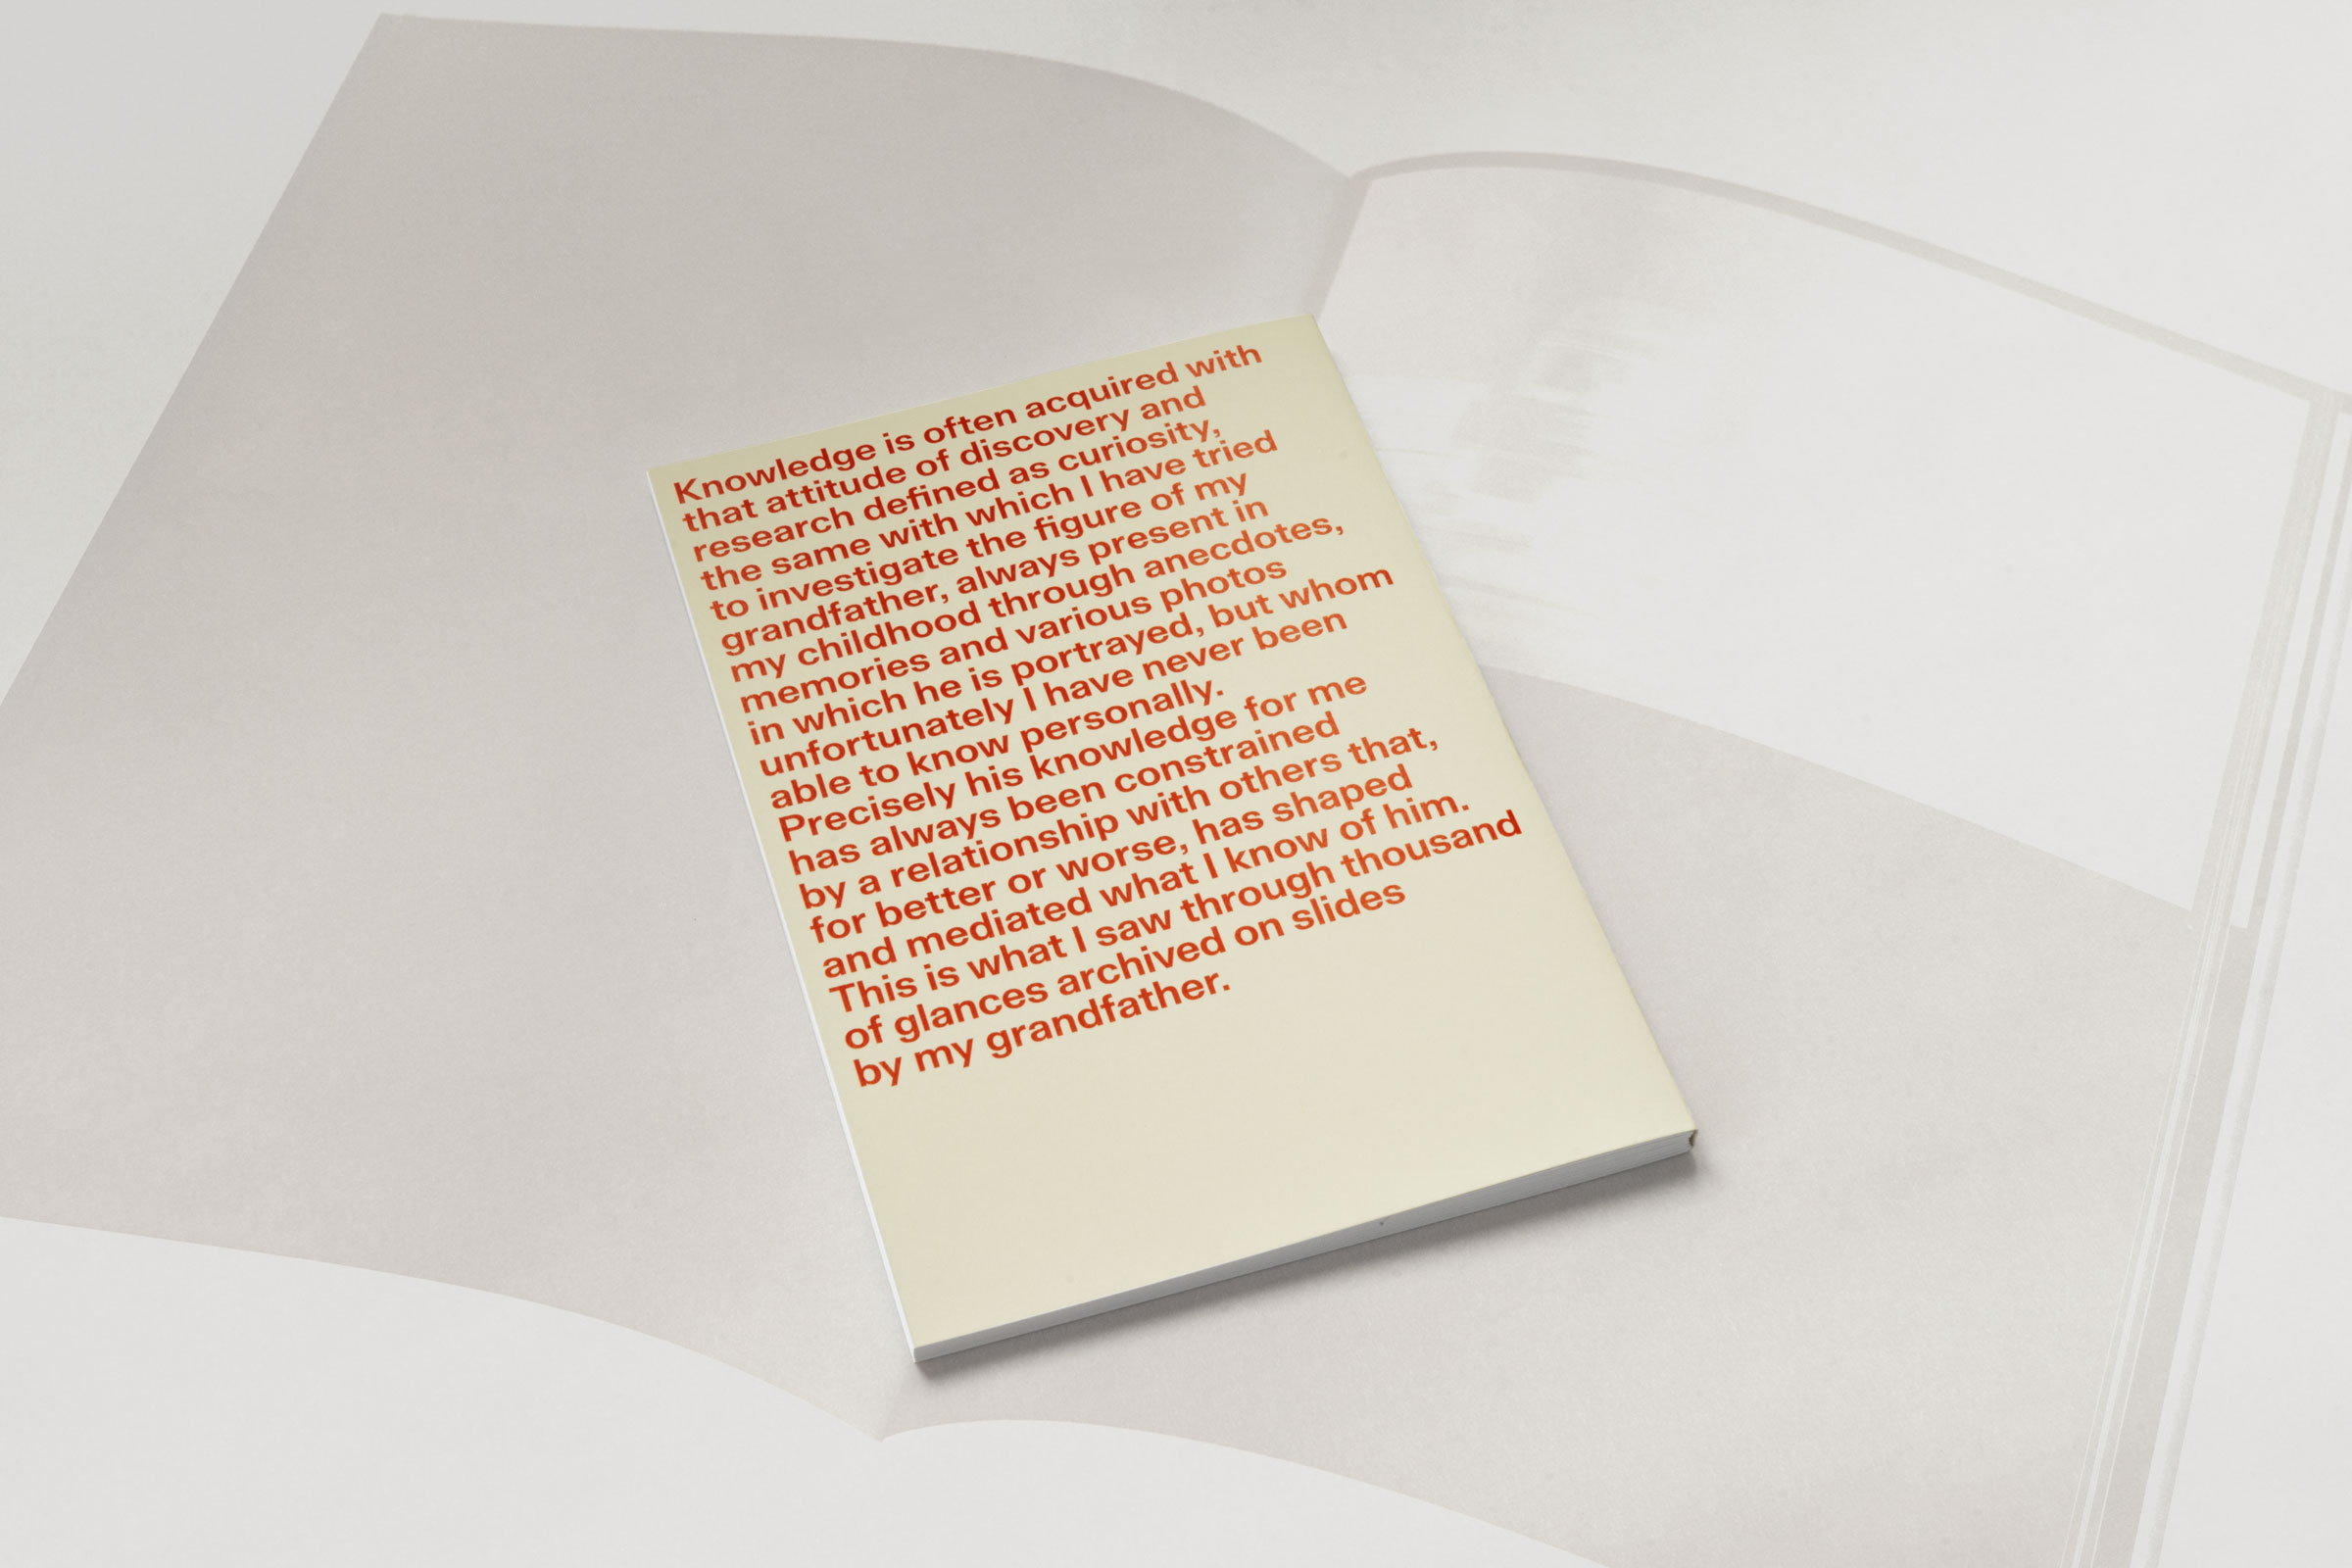 Knowledge is often acquired with
that attitude of discovery and
research defined as curiosity,
the same with which I have tried
to investigate the figure of my
grandfather, always present in
my childhood through anecdotes,
memories and various photos
in which he is portrayed, but whom
unfortunately I have never been
able to know personally.
Precisely his knowledge for me
has always been constrained
by a relationship with others that,
for better or worse, has shaped
and mediated what I know of him.
This is what I saw through thousand
of glances archived on slides
by my grandfather.